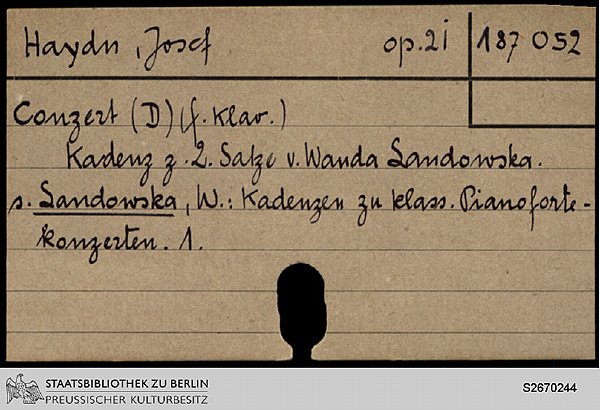 Haydn, Josef op. 21 187 052
Conzert (D) (f. Klav.)
Kadenz z. 2. Satze v. Wanda Landowska.
s. Landowska, W.: Kadenzen zu klass. Pianoforte-
konzerten. 1.
STAATSBIBLIOTHEK ZU BERLIN
PREUSSISCHER KULTURBESITZ
S2670244